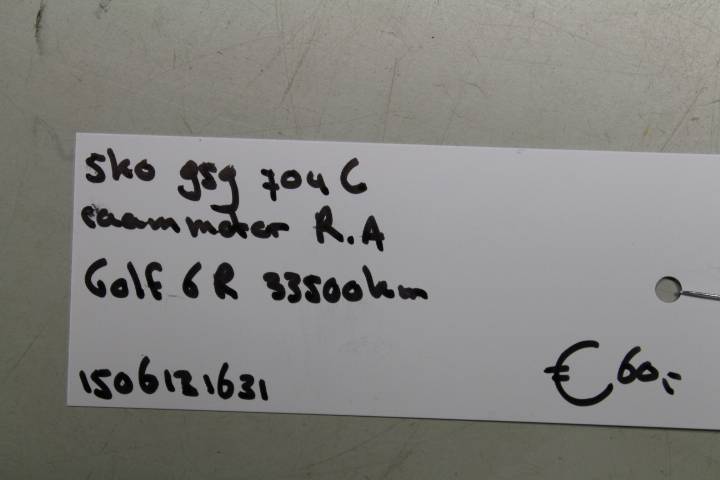 5k0 959 704 C
raammotor R.A
Golf 6 R 33500km
1506121631
€ 60,-